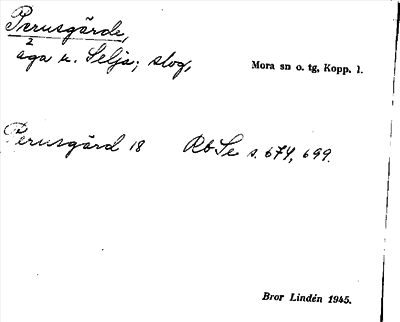 Perusgårde,
2
äga u. Selja; slog,
Mora sn o. tg, Kopp. l.
Perusgård 18 RbSe s. 674, 699.
Bror Lindén 1945.